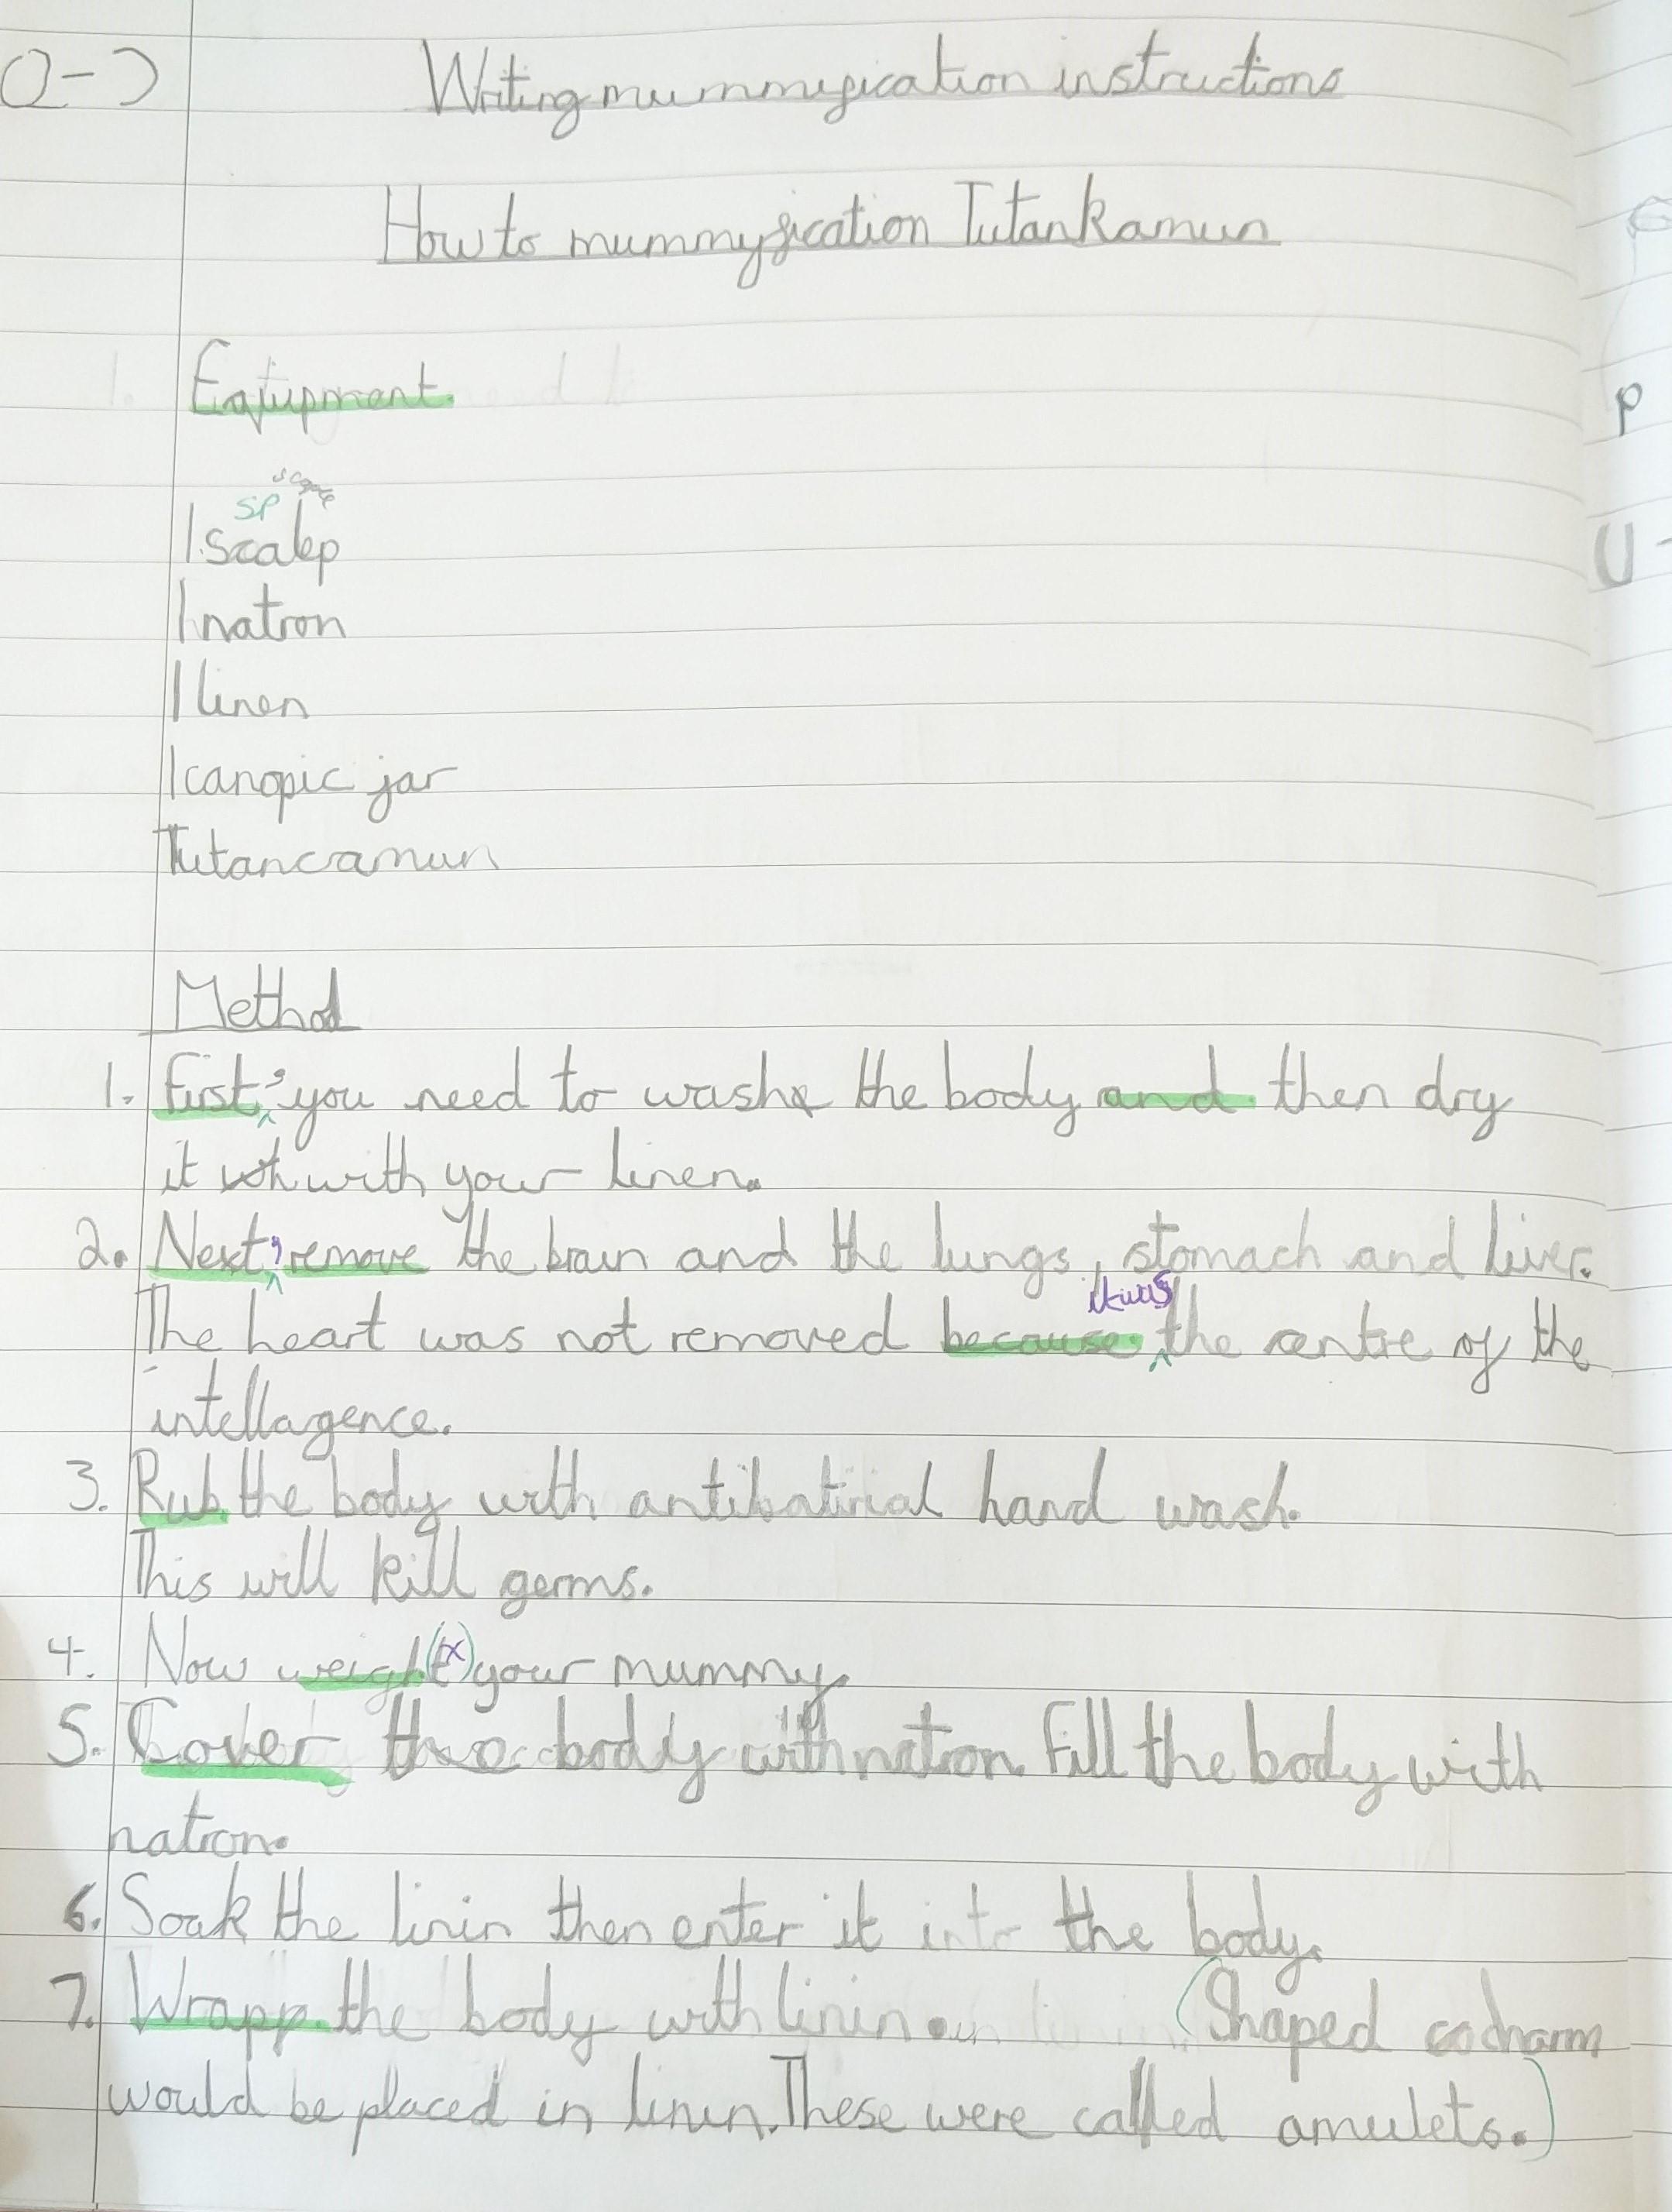 Writing mummyfication instructions
How to mummyfication Tutankamun
Equipment
SP
1 scalep
1 natron
1 linen
1 canopic jar
Tutancamun
Method
1. First, you need to wash the body and then dry
it with your linen.
2. Next, remove the brain and the lungs, stomach and liver.
it was
The heart was not removed because the centre of the
intellagence.
3. Rub the body with antibatirial hand wash.
This will kill germs.
4. Now weight your mummy.
5. Cover the body with natron. Fill the body with
natron.
6. Soak the linin then enter it into the body.
7. Wrapp the body with linin. (Shaped charm
would be placed in linen. These were called amulets.)
P
U